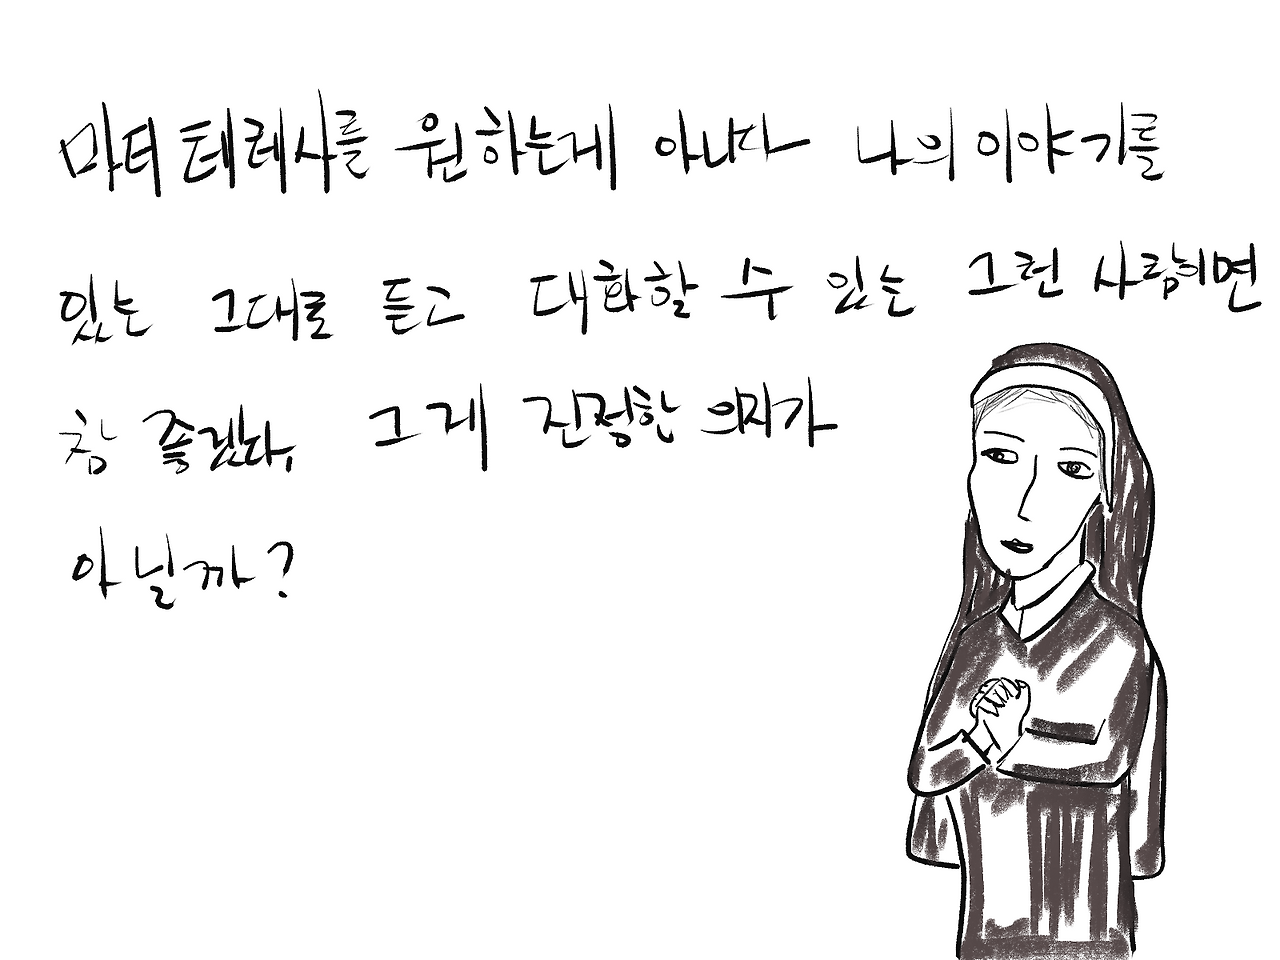 마더 테레사를 원하는게 아니다 나의 이야기를
있는 그대로 듣고 대화할 수 있는 그런 사람이면
참 좋겠다, 그게 진정한 의지가
아닐까?